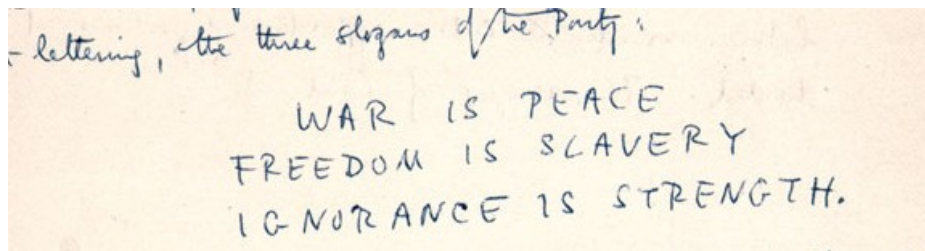 lettering, the three slogans of the Party:
WAR IS PEACE
FREEDOM IS SLAVERY
IGNORANCE IS STRENGTH.